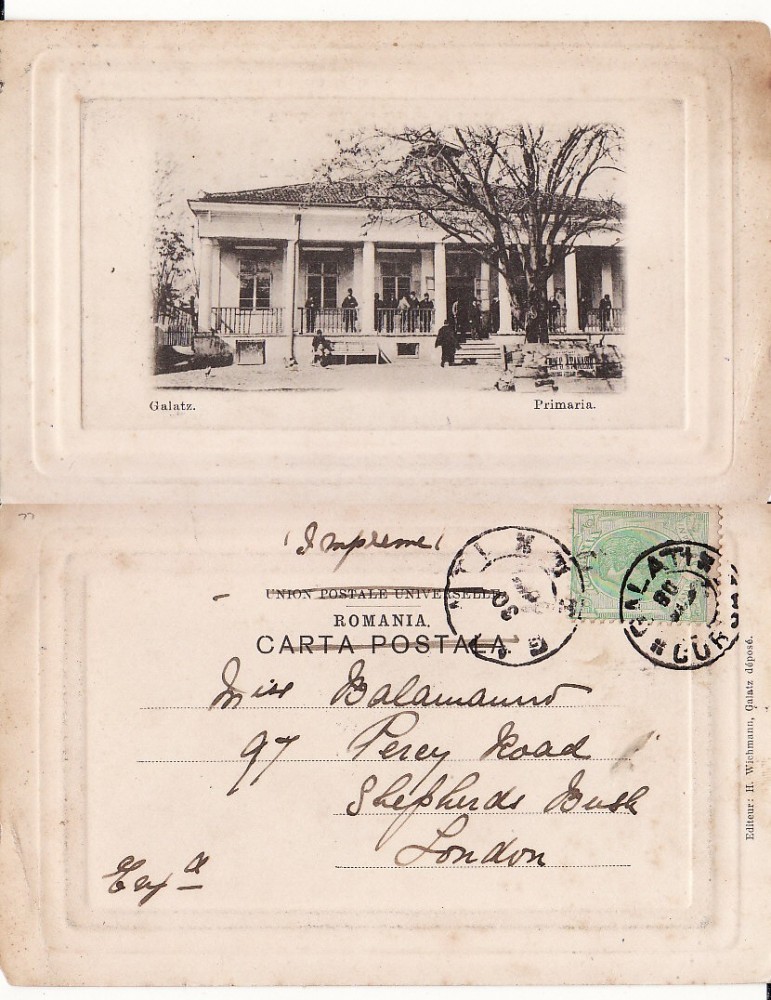 Galatz. Primaria.
(Imprime)
UNION POSTALE UNIVERSELLE
ROMANIA.
CARTA POSTALA.
Miss Balamanno
97 Percy Road
Shepherds Bush
London
GALATI
Editeur: H. Wichmann, Galatz déposé.